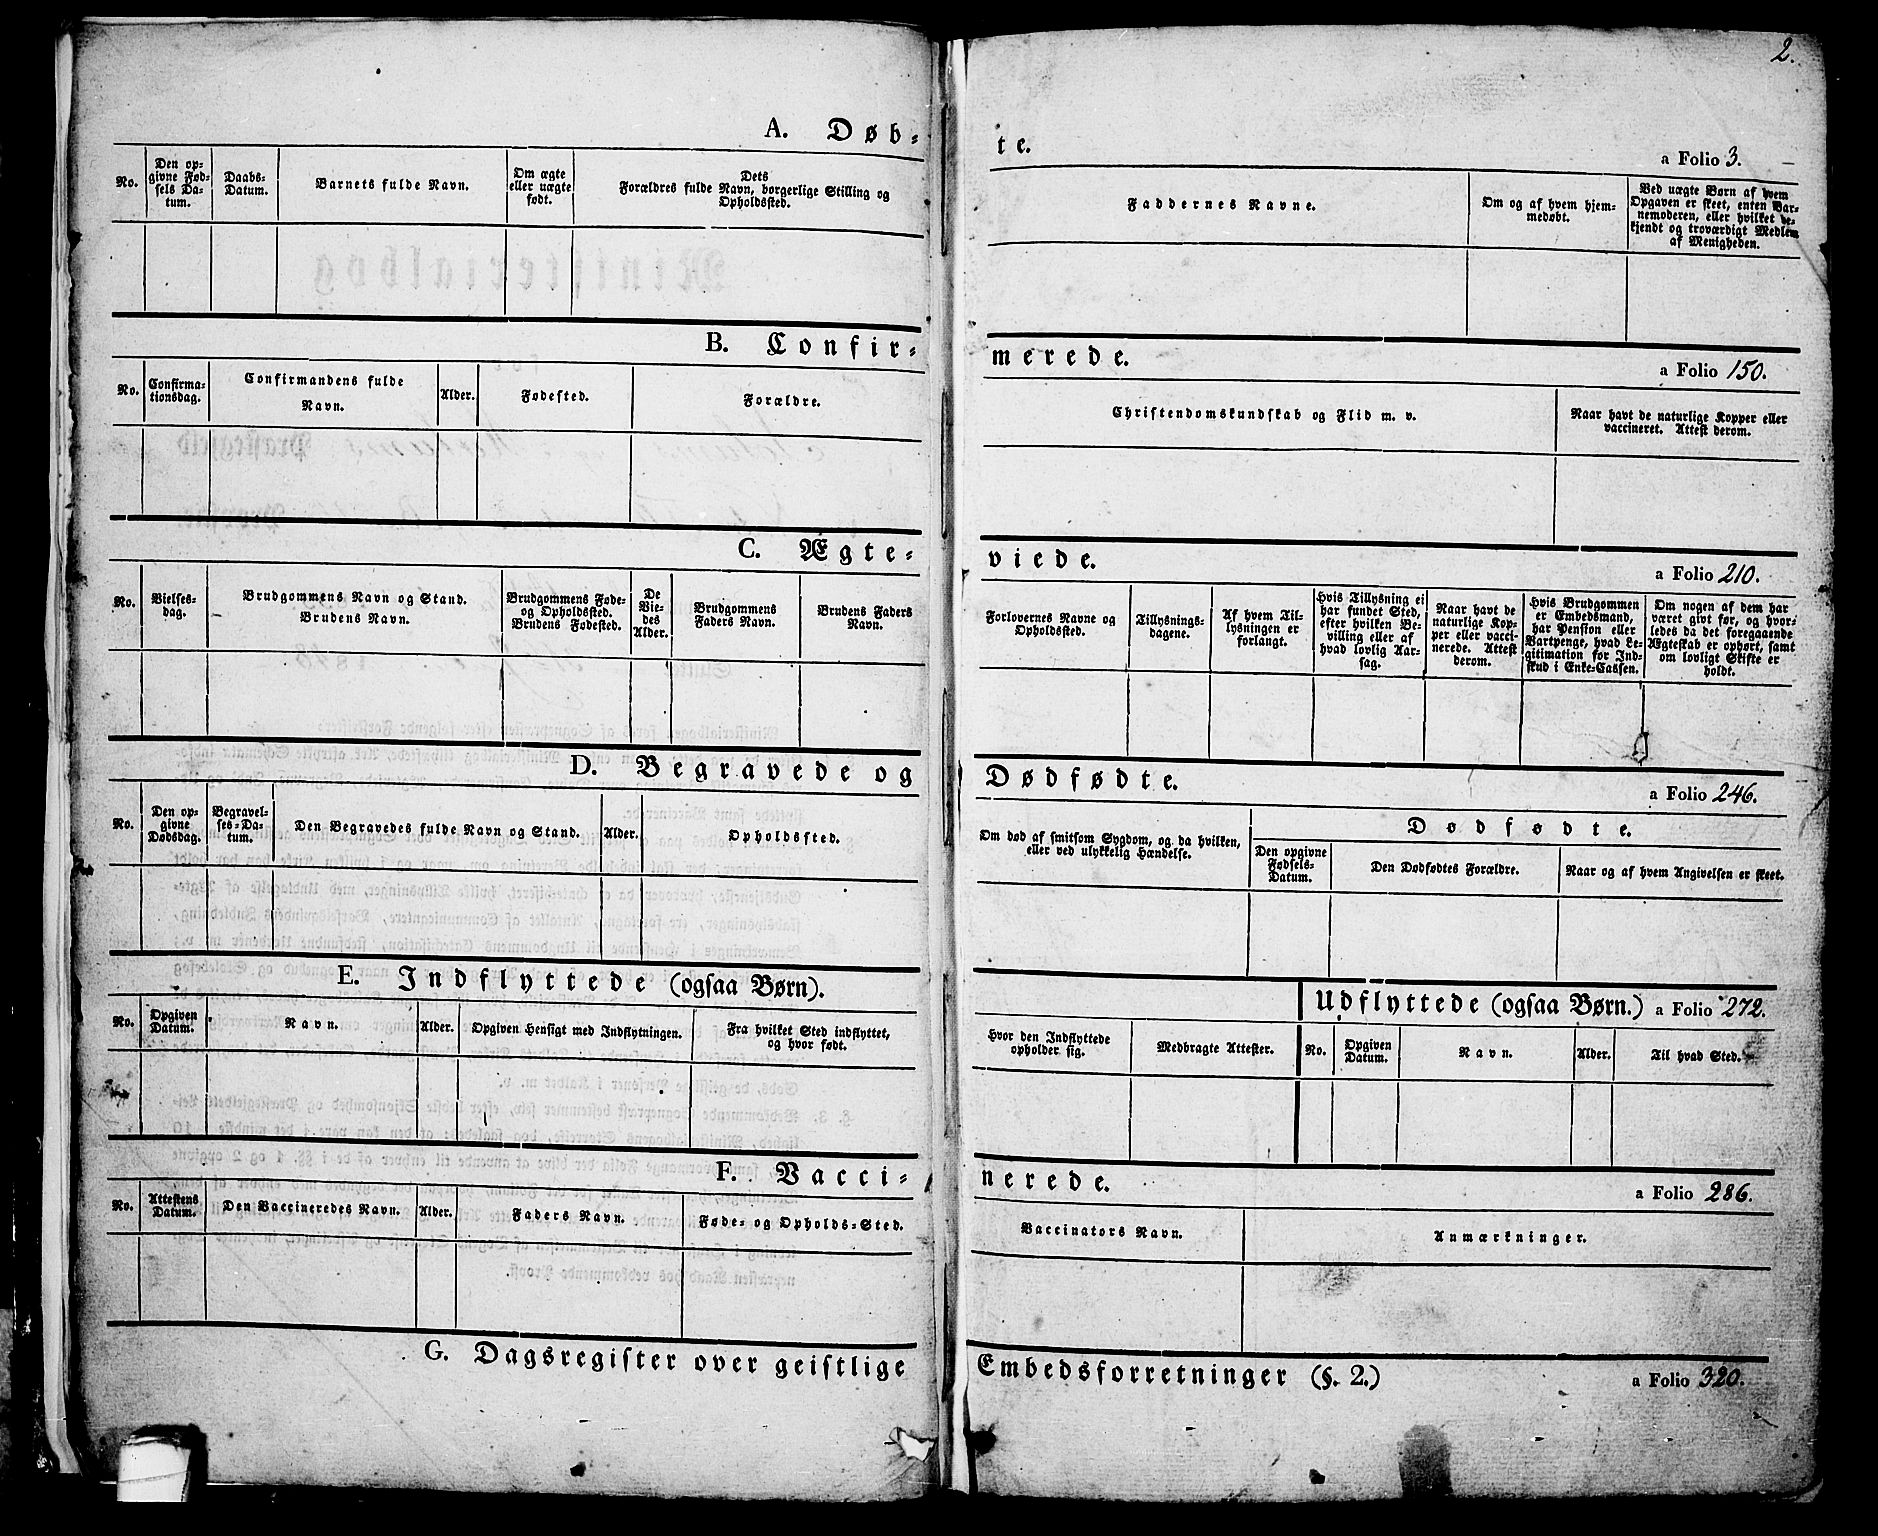 2.
A. Døb-
te.
a Folio 3.
No.
Den op-
givne Fød-
sels Da-
tum.
Daabs-
Datum.
Barnets fulde Navn.
Om ægte
eller uægte
født.
Dets
Forældres fulde Navn, borgerlige Stilling og
Opholdssted.
Faddernes Navne.
Om og af hvem hjem-
medøbt.
Ved uægte Børn af hvem
Opgaven er skeet, enten Bar-
nemoderen, eller hvilket be-
kjendt og troværdigt Medlem
af Menigheden.
B. Confir-
merede.
a Folio 150.
No.
Confirma-
tionsdag.
Confirmandens fulde
Navn.
Alder.
Fødested.
Forældre.
Christendomskundskab og Flid m. v.
Naar havt de naturlige Kopper eller
vaccineret. Attest derom.
C. Ægte-
viede.
a Folio 210.
No.
Vielses-
dag.
Brudgommens Navn og Stand.
Brudens Navn.
Brudgommens Føde-
og Opholdsted.
Brudens Fødested.
De
Vie-
des
Alder.
Brudgommens
Faders Navn.
Brudens Faders
Navn.
Forlovernes Navne og
Opholdssted.
Tillysnings-
dagene.
Af hvem Til-
lysningen er
forlangt.
Hvis Tillysning ei
har fundet Sted,
efter hvilken Be-
villing eller af
hvad lovlig Aar-
sag.
Naar havt de
naturlige Kop-
per eller vacci-
nerede. Attest
derom.
Hvis Brudgommen
er Embedsmand,
har Pension eller
Vartpenge, hvad Le-
gitimation for Ind-
skud i Enke-Cassen.
Om nogen af dem har
været gift før, og hvor-
ledes da det foregaaende
Ægteskab er ophørt, samt
om lovligt Skifte er
holdt.
D. Begravede og
Dødfødte.
a Folio 246.
No.
Den op-
givne
Dødsdag.
Begravel-
ses-Da-
tum.
Den Begravedes fulde Navn og Stand.
Alder.
Opholdssted.
Om død af smitsom Sygdom, og da hvilken,
eller ved ulykkelig Hændelse.
Dødfødte.
Den opgivne
Fødsels-
Datum.
Den Dødfødtes Forældre.
Naar og af hvem Angivelsen er skeet.
E. Indflyttede (ogsaa Børn).
Udflyttede (ogsaa Børn.) a Folio 272.
No.
Opgiven
Datum.
Navn.
Alder.
Opgiven Hensigt med Indflytningen.
Fra hvilket Sted indflyttet,
og hvor født.
Hvor den Indflyttede
opholder sig.
Medbragte Attester.
No.
Opgiven
Datum.
Navn.
Alder.
Til hvad Sted.
F. Vacci-
nerede.
a Folio 286.
No.
Attestens
Datum.
Den Vaccineredes Navn.
Alder.
Faders Navn.
Føde- og Opholds-Sted.
Vaccinators Navn.
Anmærkninger.
G. Dagsregister over geistlige
Embedsforretninger (§. 2.)
a Folio 320.